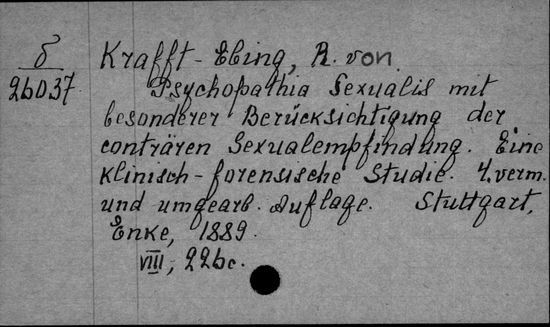 б Krafft-Ebing, R. von.
26037 Psychopathia Sexualis mit
besonderer Berücksichtigung der
conträren Sexualempfindung. Eine
klinisch-forensische Studie. 4. verm.
und umgearb. Auflage. Stuttgart,
Enke, 1889.
VIII, 226 c.